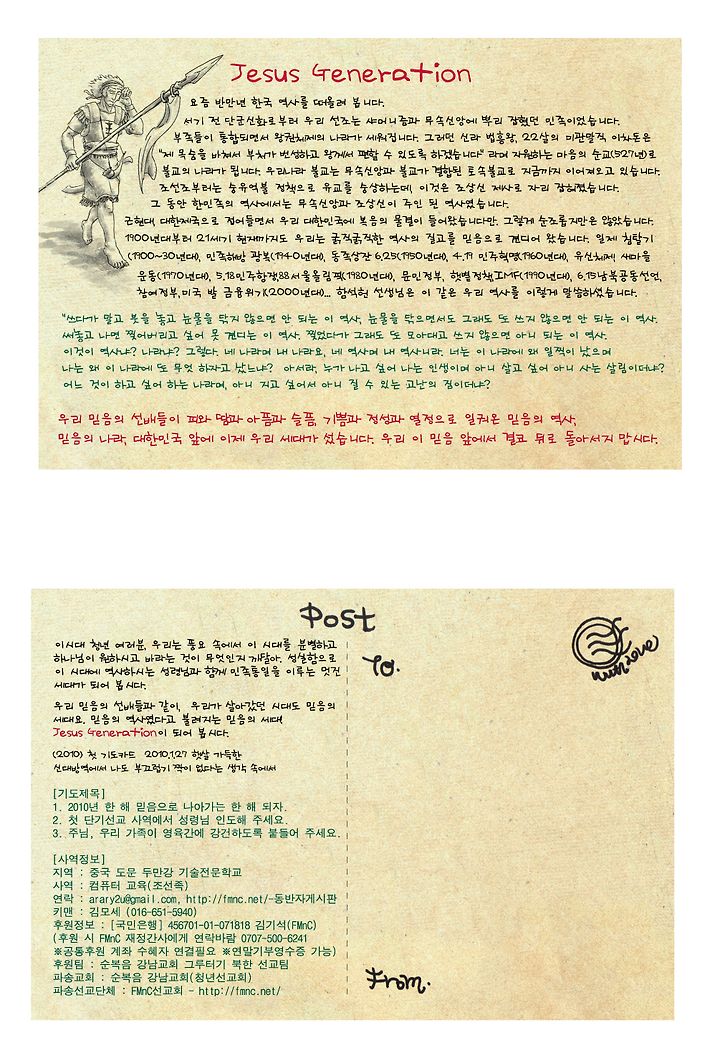 Jesus Generation
요즘 반만년 한국 역사를 떠올려 봅니다.
서기 전 단군신화로부터 우리 선조는 샤머니즘과 무속신앙에 뿌리 잡혔던 민족이었습니다.
부족들이 통합되면서 왕권체제의 나라가 세워집니다. 그러던 신라 법흥왕, 22살의 미관말직 이차돈은
"제 목숨을 바쳐서 부처가 번성하고 왕께서 편할 수 있도록 하겠습니다" 라며 자원하는 마음의 순교(527년)로
불교의 나라가 됩니다. 우리나라 불교는 무속신앙과 불교가 결합된 토속불교로 지금까지 이어져오고 있습니다.
조선조부터는 숭유억불 정책으로 유교를 숭상하는데, 이것은 조상신 제사로 자리 잡혀졌습니다.
그 동안 한민족의 역사에서는 무속신앙과 조상신이 주인 된 역사였습니다.
근현대, 대한제국으로 접어들면서 우리 대한민국에 복음의 물결이 들어왔습니다만. 그렇게 순조롭지만은 않았습니다.
1900년대부터 21세기 현재까지도 우리는 굵직굵직한 역사의 질고를 믿음으로 견디어 왔습니다. 일제 침탈기
(1900~30년대), 민족해방 광복(1940년대), 동족상잔 6.25(1950년대), 4.19 민주혁명(1960년대), 유신체제 새마을
운동(1970년대), 5.18민주항쟁,88서울올림픽(1980년대), 문민정부, 햇볕정책,IMF(1990년대), 6.15남북공동선언,
참여정부,미국 발 금융위기(2000년대)... 함석헌 선생님은 이 같은 우리 역사를 이렇게 말씀하셨습니다.
"쓰다가 말고 붓을 놓고 눈물을 닦지 않으면 안 되는 이 역사, 눈물을 닦으면서도 그래도 또 쓰지 않으면 안 되는 이 역사.
써놓고 나면 찢어버리고 싶어 못 견디는 이 역사. 찢었다가 그래도 또 모아대고 쓰지 않으면 아니 되는 이 역사.
이것이 역사냐? 나라냐? 그렇다. 네 나라며 내 나라요, 네 역사며 내 역사니라. 너는 이 나라에 왜 일찍이 났으며
나는 왜 이 나라에 또 무엇 하자고 났느냐? 아서라, 누가 나고 싶어 나는 인생이며 아니 살고 싶어 아니 사는 살림이더냐?
어느 것이 하고 싶어 하는 나라며, 아니 지고 싶어서 아니 질 수 있는 고난의 짐이더냐?
우리 믿음의 선배들이 피와 땀과 아픔과 슬픔, 기쁨과 정성과 열정으로 일궈온 믿음의 역사,
믿음의 나라, 대한민국 앞에 이제 우리 세대가 섰습니다. 우리 이 믿음 앞에서 결코 뒤로 돌아서지 맙시다.
Post
with love
To.
이시대 청년 여러분, 우리는 풍요 속에서 이 시대를 분별하고
하나님이 원하시고 바라는 것이 무엇인지 깨달아. 성실함으로
이 시대에 역사하시는 성령님과 함께 민족통일을 이루는 멋진
세대가 되어 봅시다.
우리 믿음의 선배들과 같이, 우리가 살아갔던 시대도 믿음의
세대요. 믿음의 역사였다고 불려지는 믿음의 세대
Jesus Generation이 되어 봅시다.
(2010) 첫 기도카드 2010.1.27 햇살 가득한
신대방역에서 나도 부끄럽기 짝이 없다는 생각 속에서
[기도제목]
1. 2010년 한 해 믿음으로 나아가는 한 해 되자.
2. 첫 단기선교 사역에서 성령님 인도해 주세요.
3. 주님, 우리 가족이 영육간에 강건하도록 붙들어 주세요.
[사역정보]
지역 : 중국 도문 두만강 기술전문학교
사역 : 컴퓨터 교육(조선족)
연락 : arary2u@gmail.com, http://fmnc.net/-동반자게시판
키맨 : 김모세 (016-651-5940)
후원정보 : [국민은행] 456701-01-071818 김기석(FMnC)
(후원 시 FMnC 재정간사에게 연락바람 0707-500-6241
※공통후원 계좌 수혜자 연결필요 ※연말기부영수증 가능)
후원팀 : 순복음 강남교회 그루터기 북한 선교팀
파송교회 : 순복음 강남교회(청년선교회)
파송선교단체 : FMnC선교회 - http://fmnc.net/
From.